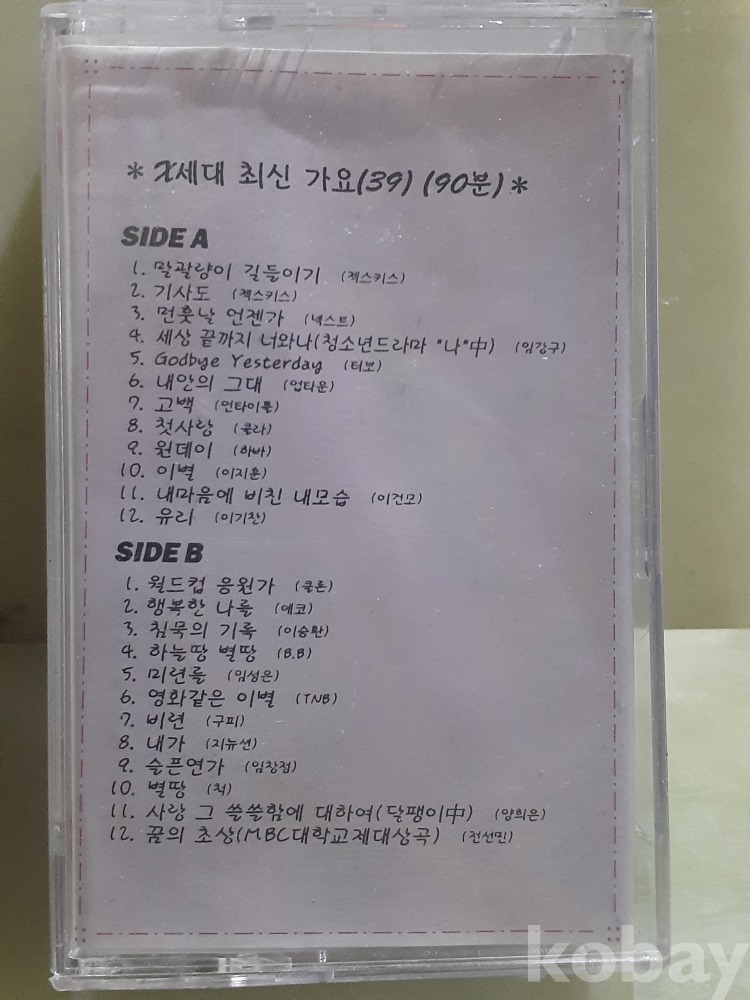 * X세대 최신 가요(39) (90분) *
SIDE A
1. 말괄량이 길들이기 (젝스키스)
2. 기사도 (젝스키스)
3. 먼훗날 언젠가 (넥스트)
4. 세상 끝까지 너와나(청소년드라마 "나"中) (임강구)
5. Godbye Yesterday (터보)
6. 내안의 그대 (업타운)
7. 고백 (언타이틀)
8. 첫사랑 (쿨라)
9. 원데이 (하바)
10. 이별 (이지훈)
11. 내마음에 비친 내모습 (이건모)
12. 유리 (이기찬)
SIDE B
1. 월드컵 응원가 (클론)
2. 행복한 나를 (에코)
3. 침묵의 기록 (이승환)
4. 하늘땅 별땅 (B.B)
5. 미련를 (임성은)
6. 영화같은 이별 (TNB)
7. 비련 (구피)
8. 내가 (지뉴션)
9. 슬픈연가 (임창정)
10. 별땅 (척)
11. 사랑 그 쓸쓸함에 대하여(달팽이中) (양희은)
12. 꿈의 초상(MBC대학교제대상곡) (전선민)
kobay